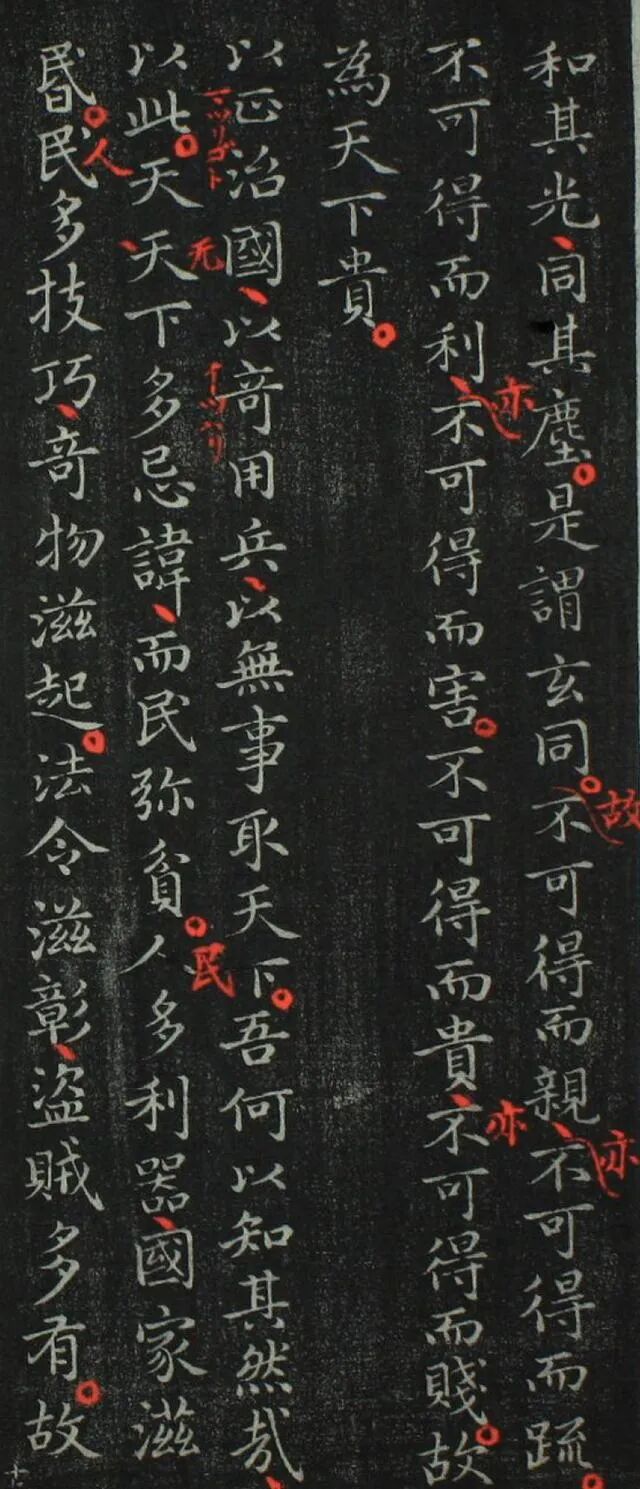 和其光同其塵是謂玄同不可得而親不可得而疏
不可得而利不可得而害不可得而貴不可得而賤故
為天下貴
以正治國以奇用兵以無事取天下吾何以知其然哉
以此天天下多忌諱而民弥貧人多利器國家滋
昬民多技巧奇物滋起法令滋彰盗賊多有故
故
亦
亦
亦
无
民
人